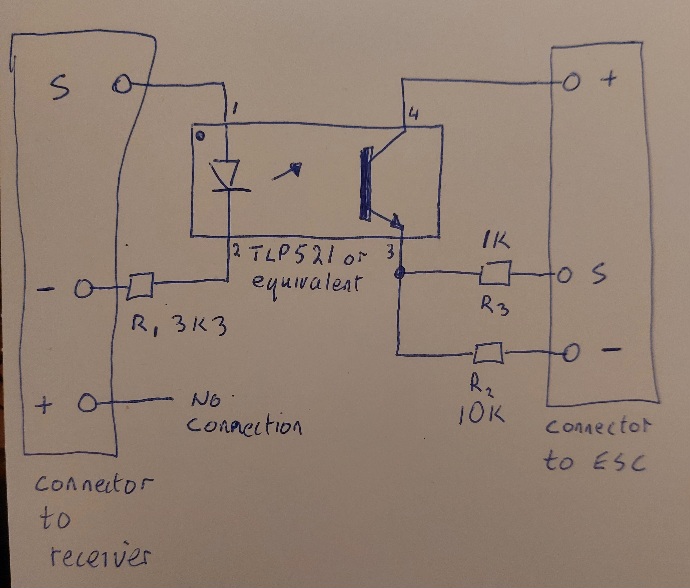 S
+
1
4
2
TLP521 or
equivalent
3
1K
S
R3
-
R1 3K3
-
R2
10K
+
No
Connection
Connector
to ESC
Connector
to
receiver